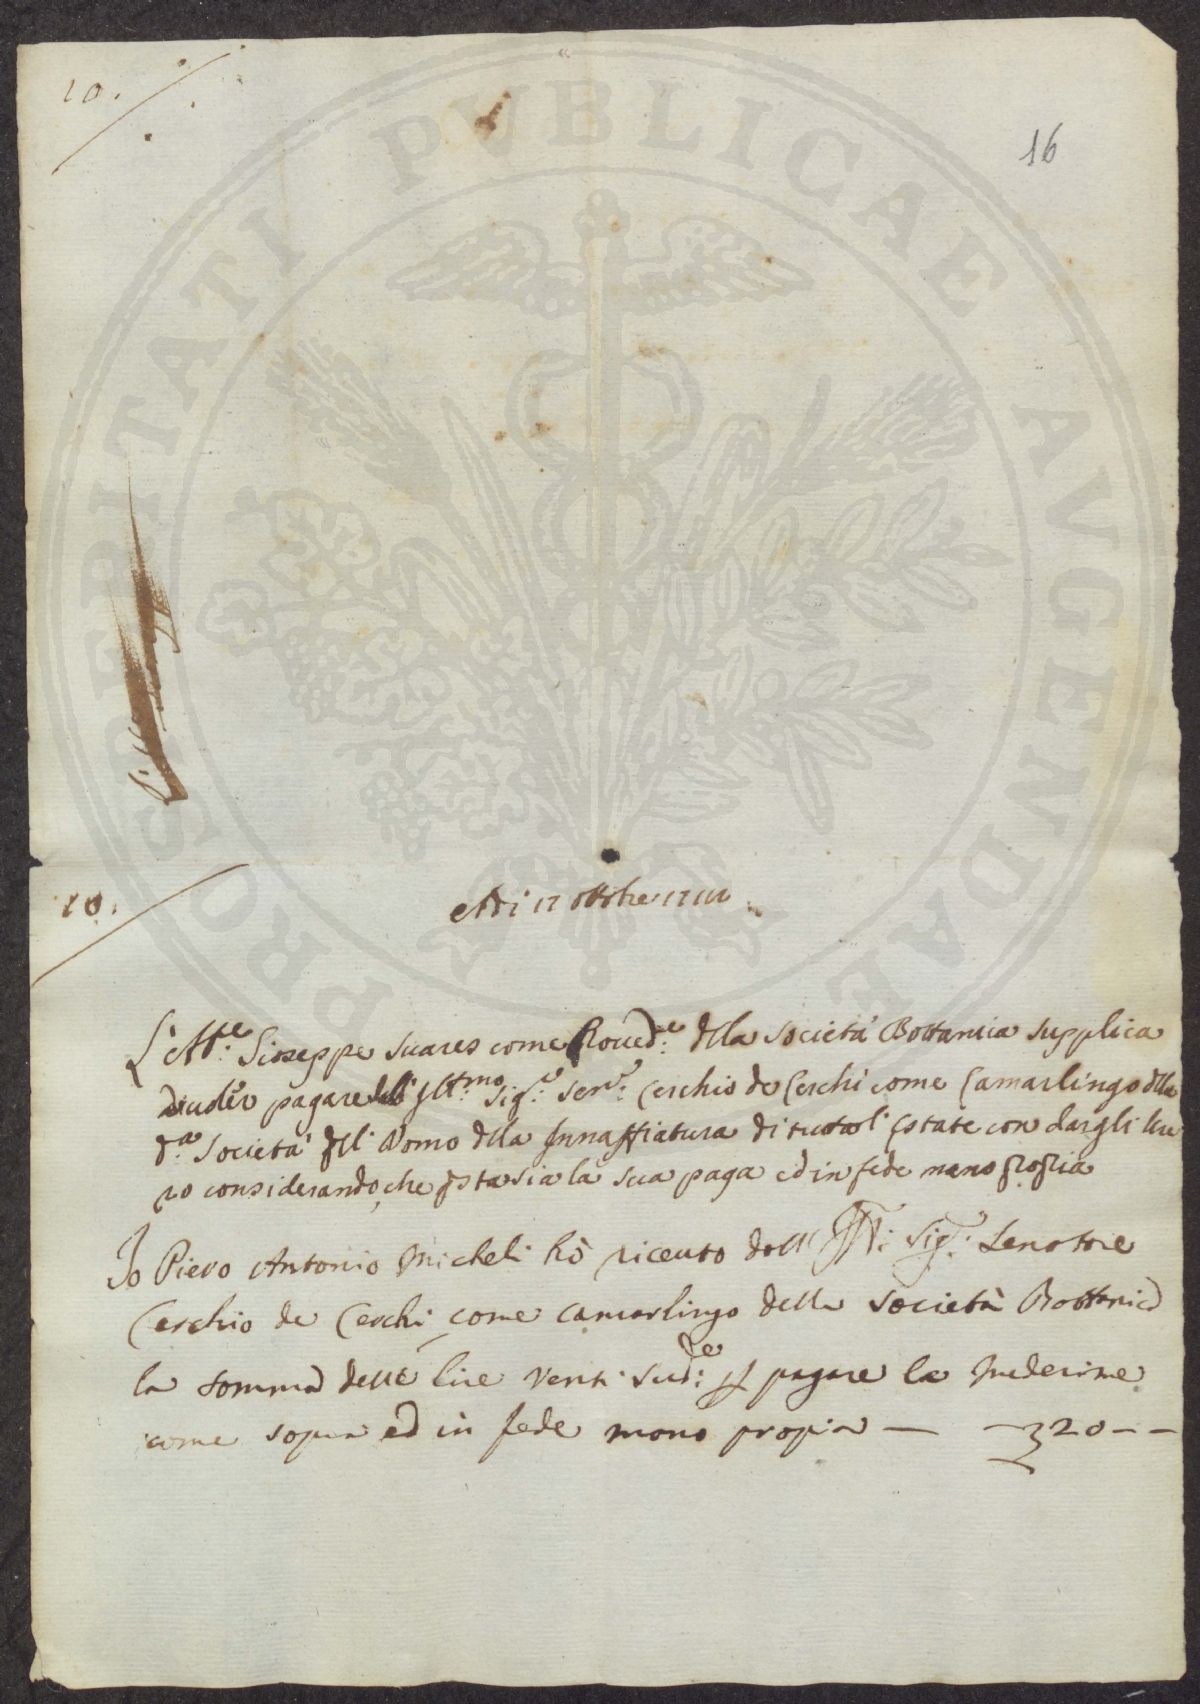 10.
16
PROSPERITATI PVBLICAE AVGENDAE
10.
Adi 17 ottobre
L'Ab.e Gioseppe Suares come Proved.e della Società Bottanica supplica
pagare Ill.mo Sig.e Sen.e Cerchio de Cerchi come Camarlingo della
d.a Società Uomo della Innaffiatura di tutta l'Estate con dargli
considerando, che q.sta sia la sua paga ed in fede mano propria
Io Piero Antonio Micheli hò riceuto dall Ill: Sig.e Senatore
Cerchio de Cerchi come camarlingo della Società Bottanica
la somma delle lire venti sud.e p pagare le medesime
come sopra ed in fede mano propria — 20 — —